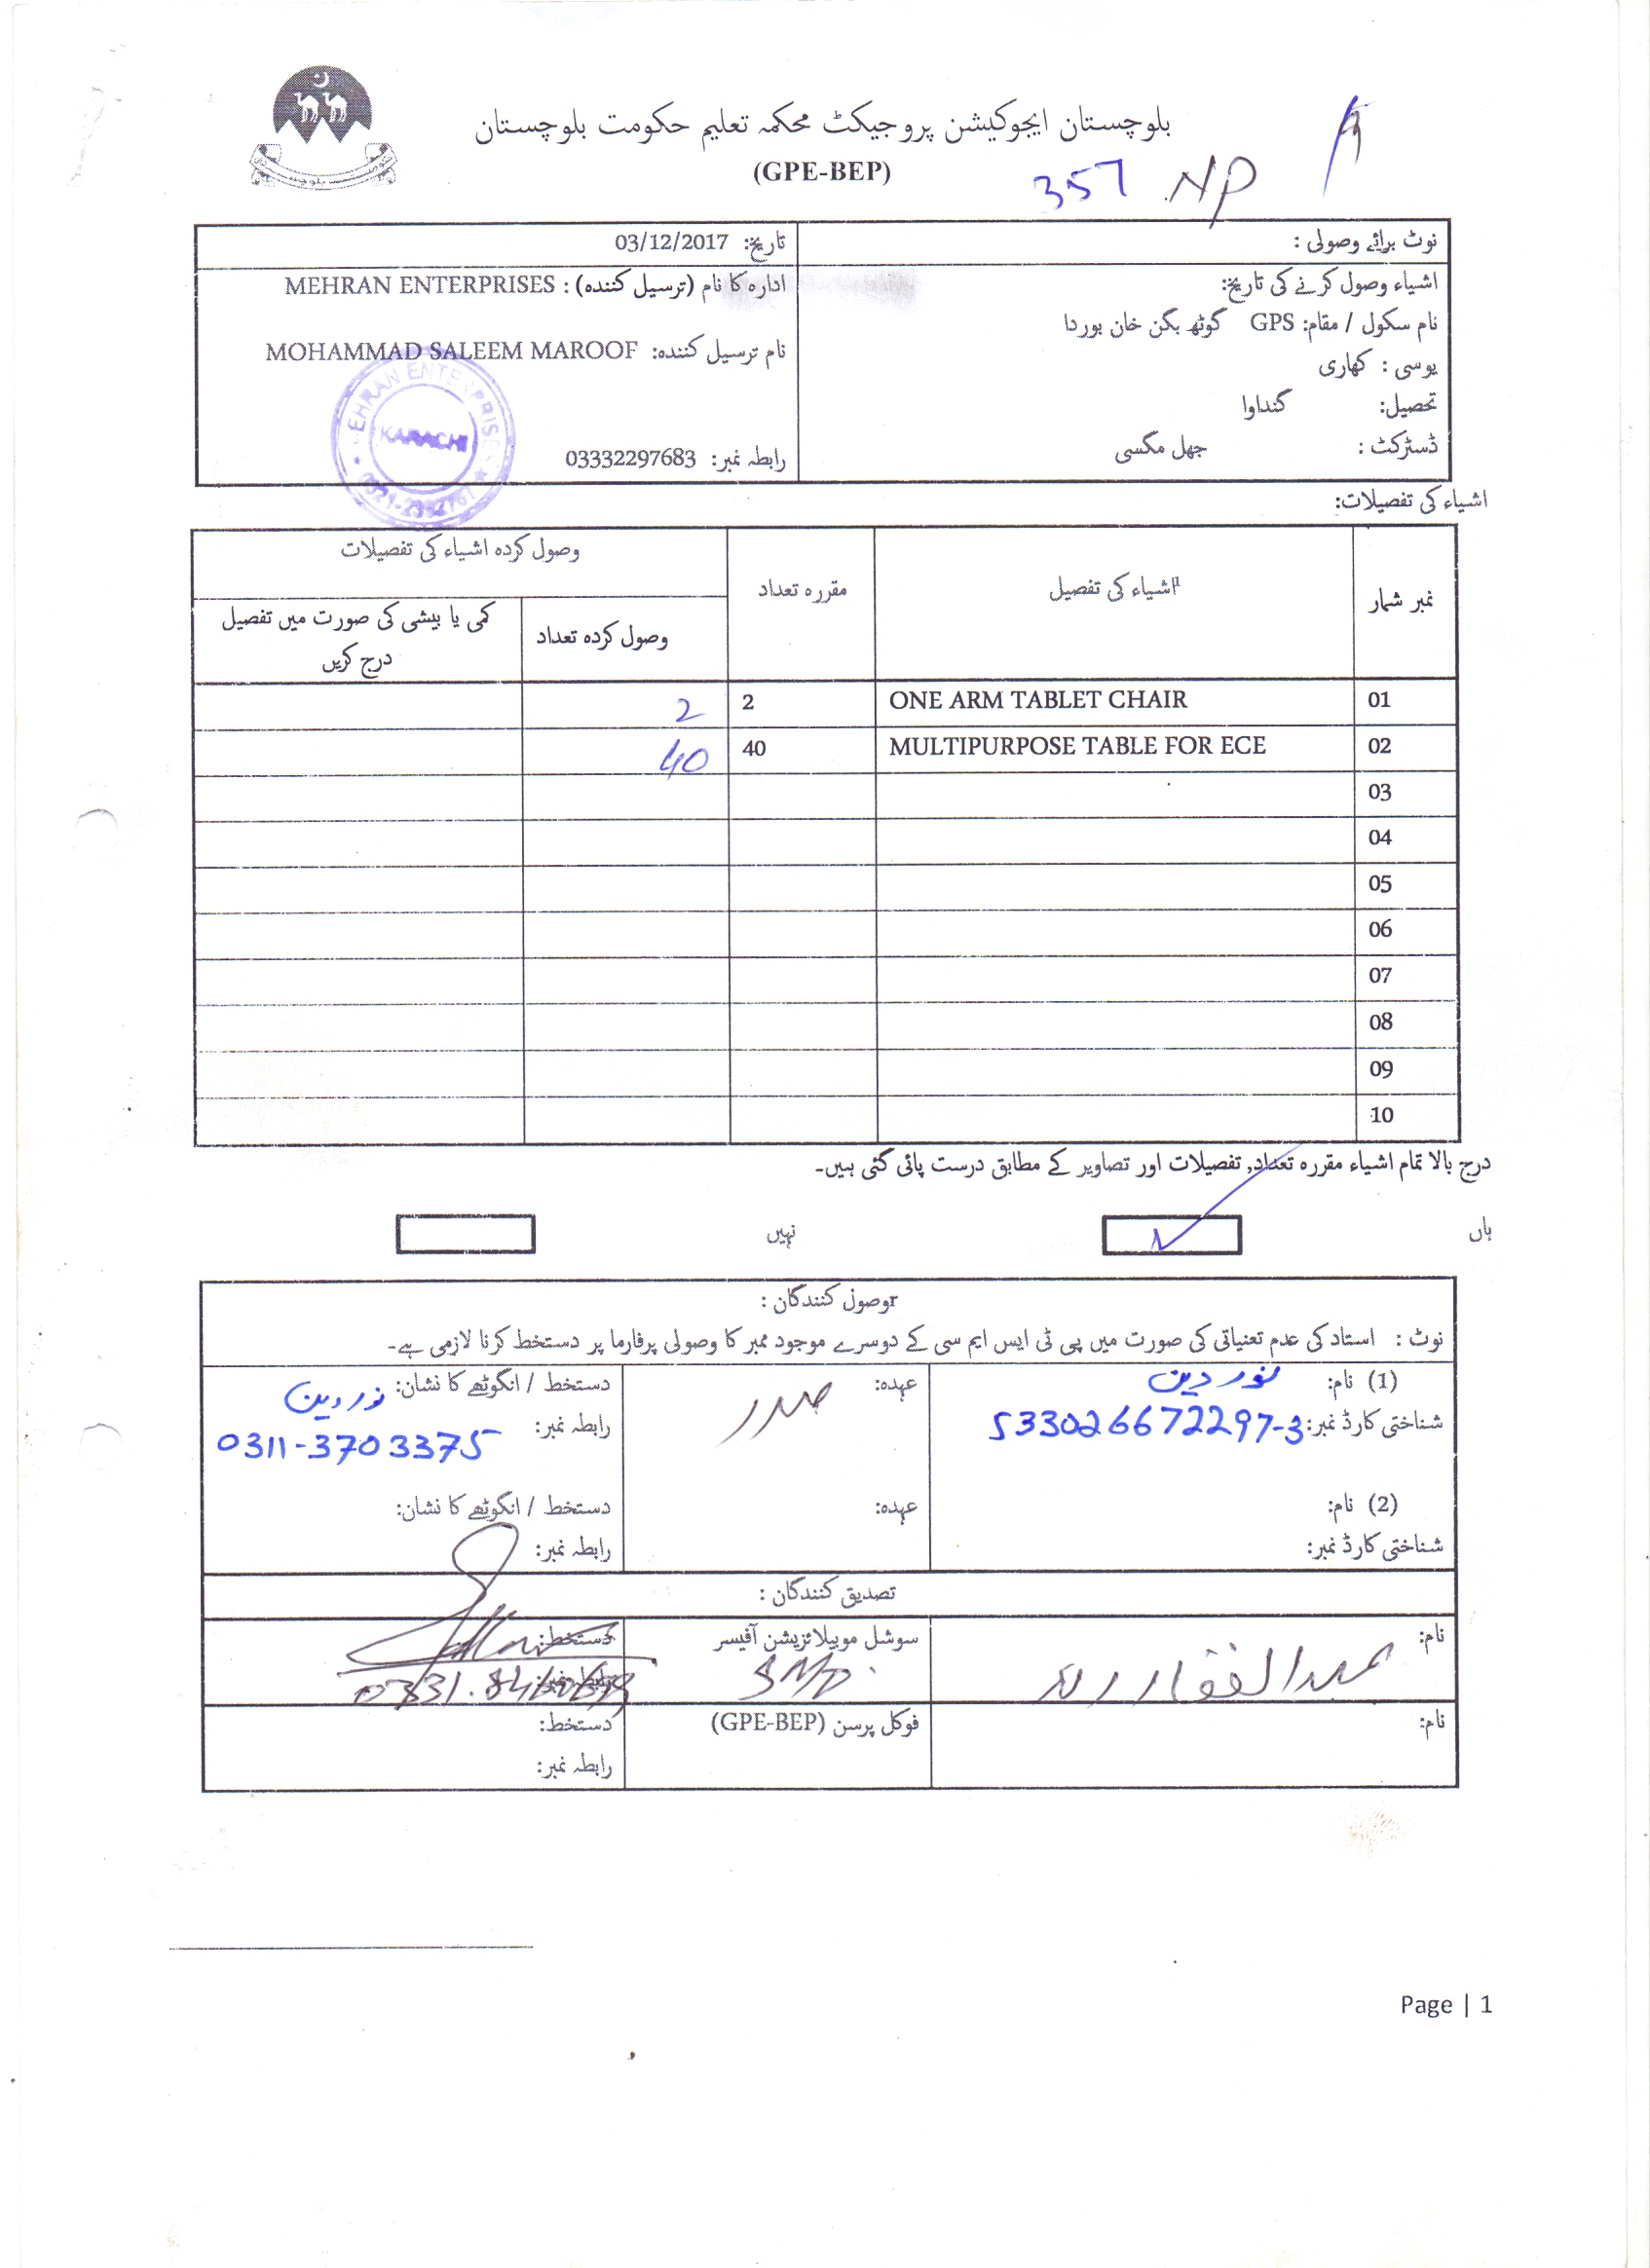 بلوچستان ایجوکیشن پروجیکٹ محکمہ تعلیم حکومت بلوچستان
(GPE-BEP)
357 NP
نوٹ برائے وصولی :
تاریخ: 03/12/2017
اشیاء وصول کرنے کی تاریخ:
نام سکول / مقام: GPS گوٹھ بگن خان بوردا
یوسی : کھاری
تحصیل: گنداوا
ڈسٹرکٹ : جھل مگسی
ادارہ کا نام (ترسیل کنندہ) : MEHRAN ENTERPRISES
نام ترسیل کنندہ: MOHAMMAD SALEEM MAROOF
رابطہ نمبر: 03332297683
MEHRAN ENTERPRISES
KARACHI
اشیاء کی تفصیلات:
نمبر شمار اشیاء کی تفصیل مقررہ تعداد وصول کردہ اشیاء کی تفصیلات
وصول کردہ تعداد کمی یا بیشی کی صورت میں تفصیل درج کریں
01 ONE ARM TABLET CHAIR 2 2
02 MULTIPURPOSE TABLE FOR ECE 40 40
03
04
05
06
07
08
09
10
درج بالا تمام اشیاء مقررہ تعداد, تفصیلات اور تصاویر کے مطابق درست پائی گئی ہیں۔
ہاں نہیں
وصول کنندگان :
نوٹ : استاد کی عدم تعنیاتی کی صورت میں پی ٹی ایس ایم سی کے دوسرے موجود ممبر کا وصولی پرفارما پر دستخط کرنا لازمی ہے۔
(1) نام: نور دین عہدہ: صدر دستخط / انگوٹھے کا نشان: نور دین
شناختی کارڈ نمبر: 533026672297-3 رابطہ نمبر: 0311-3703375
(2) نام: عہدہ: دستخط / انگوٹھے کا نشان:
شناختی کارڈ نمبر: رابطہ نمبر:
تصدیق کنندگان :
نام: عبدالغفار سوشل موبیلائزیشن آفیسر دستخط:
SMO
نام: فوکل پرسن (GPE-BEP) دستخط:
رابطہ نمبر:
Page | 1